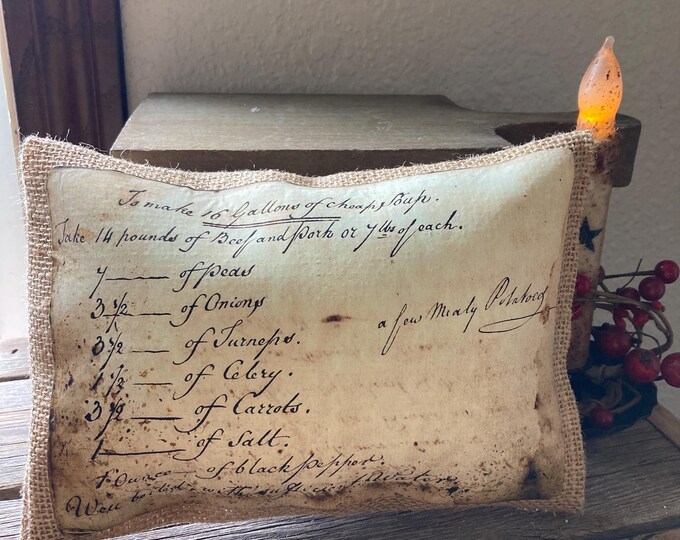 To make 16 Gallons of cheap Soup.
Take 14 pounds of Beef and Pork or 7 lbs of each.
7 —— of Peas
3 1/2 —— of Onions
3 1/2 —— of Turneps.
1 1/2 —— of Celery.
3 1/2 —— of Carrots.
1 —— of Salt.
Ounce —— of black Pepper.
Well boiled with sufficient Water
a few Mealy Potatoes